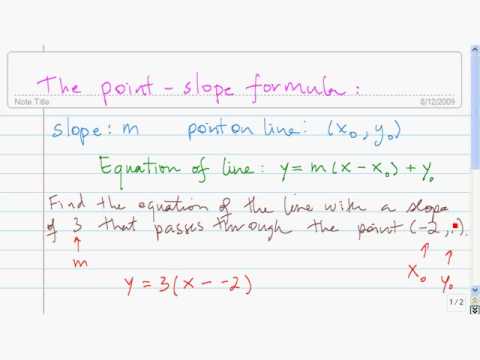 The point-slope formula:
Note Title
8/12/2009
slope: m point on line: (x₀, y₀)
Equation of line: y = m(x - x₀) + y₀
Find the equation of the line with a slope
of 3 that passes through the point (-2, ).
m
x₀ y₀
y = 3(x - -2)
1/2